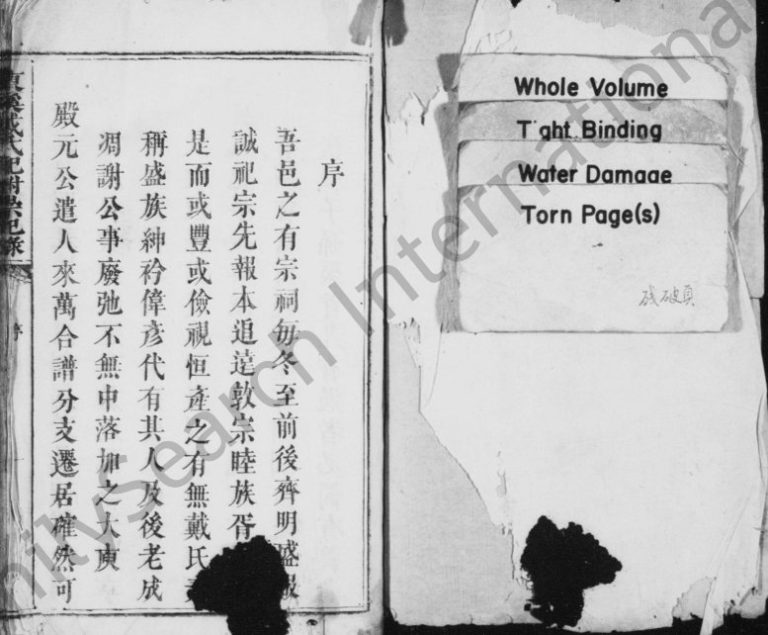 Whole Volume
Tight Binding
Water Damage
Torn Page(s)
残破頁
序
吾邑之有宗祠每冬至前後齊明盛服
誠祀宗先報本追遠敦宗睦族胥
是而或豐或儉視恒產之有無戴氏
稱盛族紳衿偉彥代有其人及後老成
凋謝公事廢弛不無中落加之大庾
殿元公遣人來萬合譜分支遷居確然可
戴氏祀
序
FamilySearch International